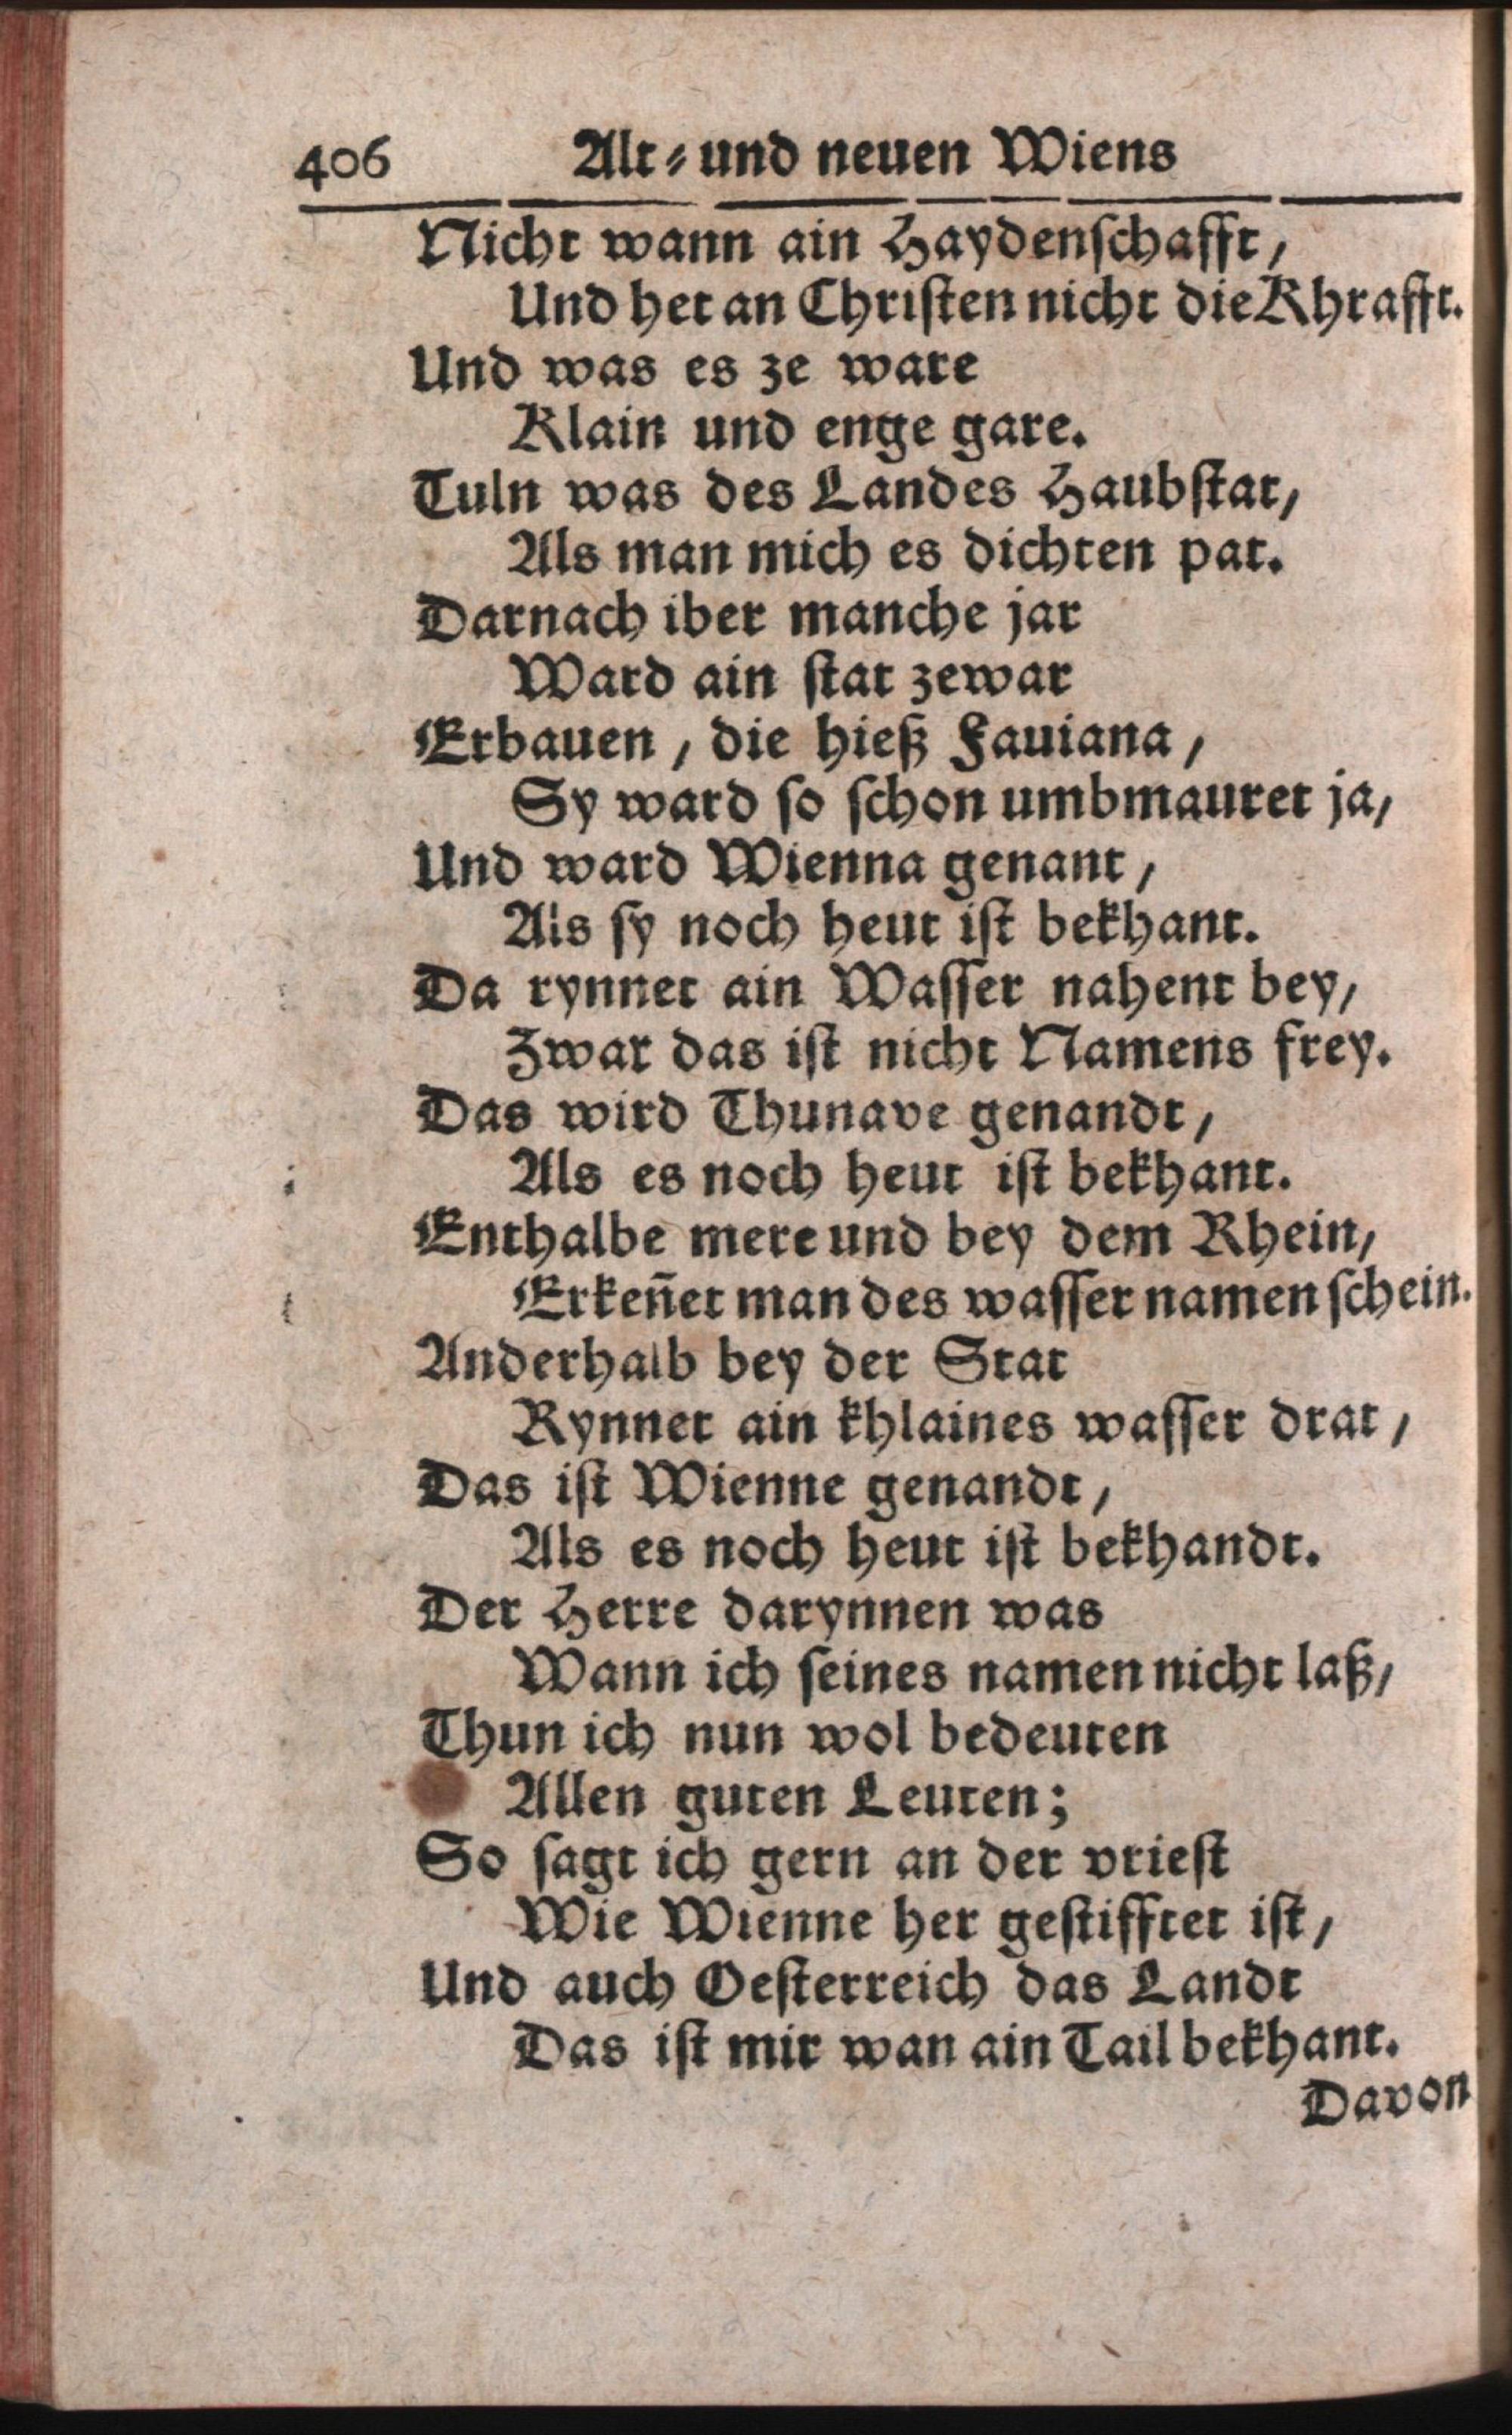 406 Alt⸗ und neuen Wiens
Nicht wann ain Haydenſchafft,
Und het an Chriſten nicht die Khrafft.
Und was es ze ware
Klain und enge gare.
Tuln was des Landes Haubſtat,
Als man mich es dichten pat.
Darnach iber manche jar
Ward ain ſtat zewar
Erbauen, die hieß Fauiana,
Sy ward ſo ſchon umbmauret ja,
Und ward Wienna genant,
Als ſy noch heut iſt bekhant.
Da rynnet ain Waſſer nahent bey,
Zwar das iſt nicht Namens frey.
Das wird Thunave genandt,
Als es noch heut iſt bekhant.
Enthalbe mere und bey dem Rhein,
Erkeñet man des waſſer namen ſchein.
Anderhalb bey der Stat
Rynnet ain khlaines waſſer drat,
Das iſt Wienne genandt,
Als es noch heut iſt bekhandt.
Der Herre darynnen was
Wann ich ſeines namen nicht laß,
Thun ich nun wol bedeuten
Allen guten Leuten;
So ſagt ich gern an der vrieſt
Wie Wienne her geſtifftet iſt,
Und auch Oeſterreich das Landt
Das iſt mir wan ain Tail bekhant.
Davon